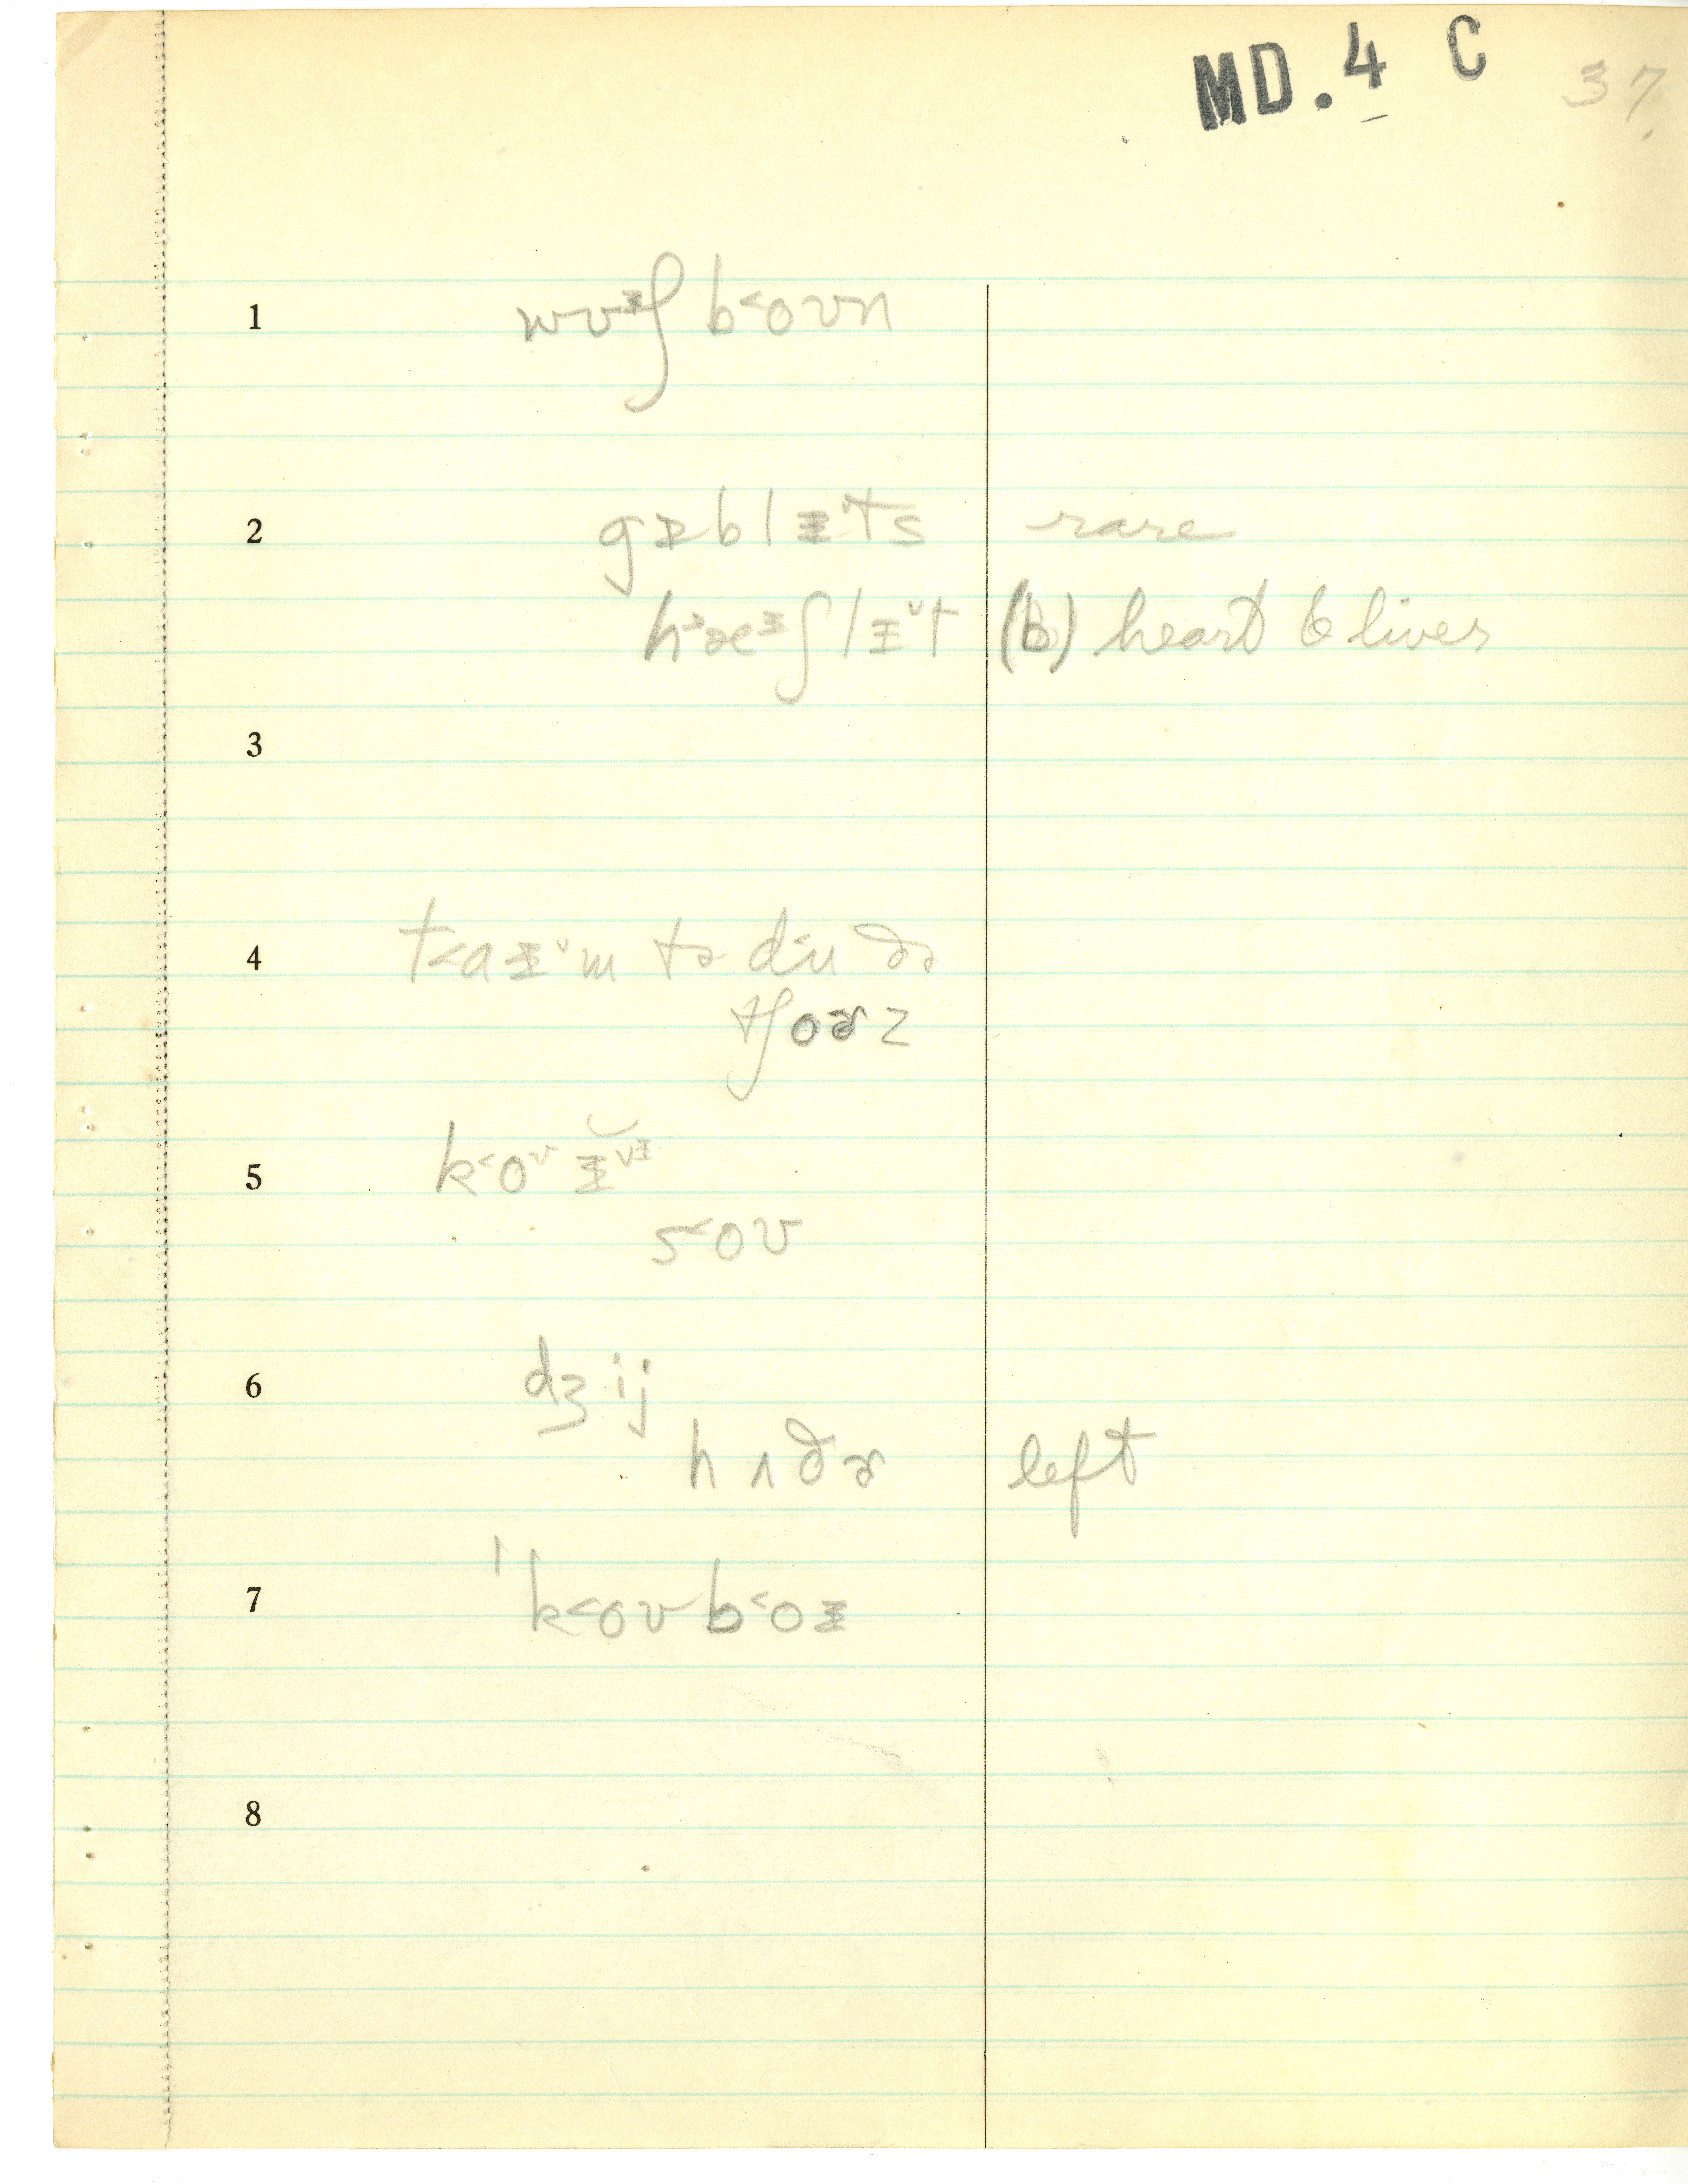 MD.4 C 37
1 wʊᵻʃ b˂oʊn
2 gɪblᵻˇts rare
hᵌæᵻʃlᵻˇt (b) heart & liver
3
4 t˂aᵻˇm tə d˂u ðə
tʃoɚz
5 k˂oᵛ ᵻˇᵻ
s˂oʊ
6 dʒij
hʌðɚ left
7 ˈk˂oʊb˂oᵻ
8